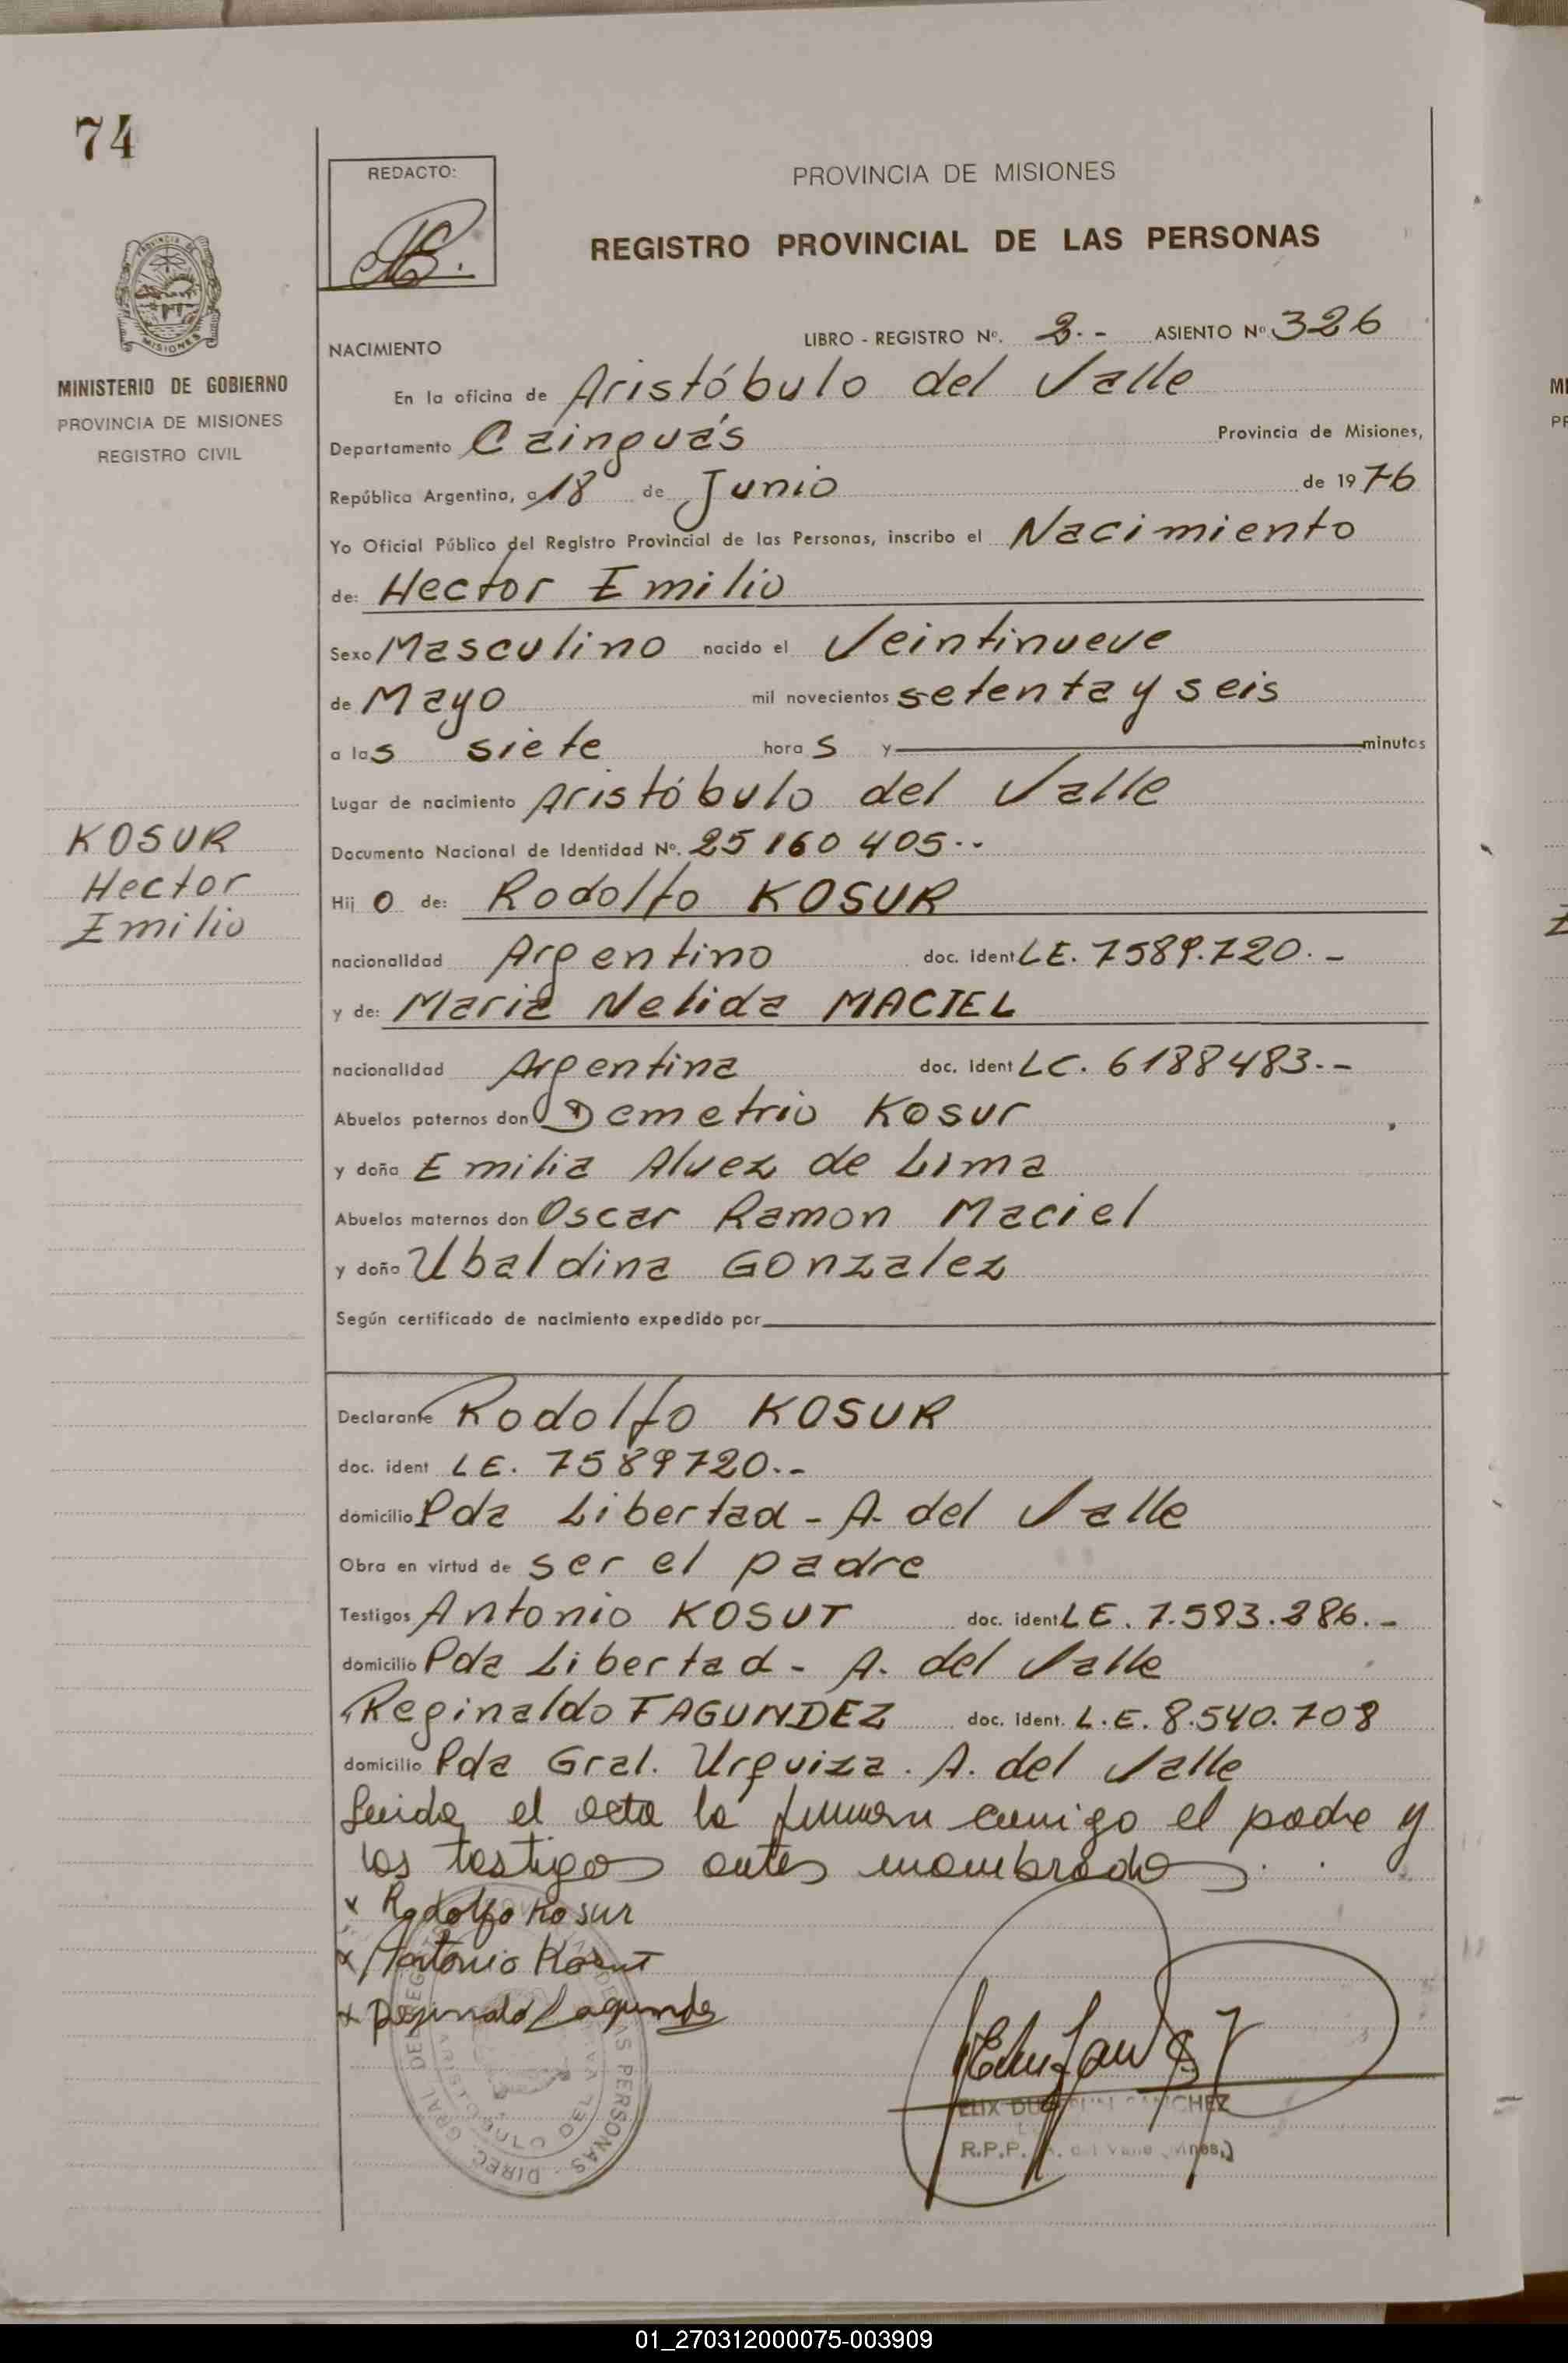 74
REDACTO:
PROVINCIA DE MISIONES
REGISTRO PROVINCIAL DE LAS PERSONAS
PROVINCIA DE
MISIONES
MINISTERIO DE GOBIERNO
PROVINCIA DE MISIONES
REGISTRO CIVIL
NACIMIENTO LIBRO - REGISTRO Nº. 2.- ASIENTO Nº 326
En la oficina de Aristóbulo del Valle
Departamento Cainguás Provincia de Misiones,
República Argentina, a 18 de Junio de 1976
Yo Oficial Público del Registro Provincial de las Personas, inscribo el Nacimiento
de: Hector Emilio
Sexo Masculino nacido el Veintinueve
de Mayo mil novecientos setenta y seis
a las siete horas y minutos
Lugar de nacimiento Aristóbulo del Valle
KOSUR
Hector
Emilio
Documento Nacional de Identidad Nº. 25160405.-
Hijo de: Rodolfo KOSUR
nacionalidad Argentino doc. ident LE. 7589.720.-
y de: Maria Nelida MACIEL
nacionalidad Argentina doc. ident LC. 6188483.-
Abuelos paternos don Demetrio Kosur
y doña Emilia Alvez de Lima
Abuelos maternos don Oscar Ramon Maciel
y doña Ubaldina Gonzalez
Según certificado de nacimiento expedido por
Declarante Rodolfo KOSUR
doc. ident LE. 7589720.-
domicilio Pda Libertad - A. del Valle
Obra en virtud de ser el padre
Testigos Antonio KOSUT doc. ident LE. 7.593.286.-
domicilio Pda Libertad - A. del Valle
Reginaldo FAGUNDEZ doc. ident. L.E. 8.540.708
domicilio Pda Gral. Urquiza. A. del Valle
Leida el acta la firman conmigo el padre y
los testigos antes nombrados.
x Rodolfo Kosur
x Antonio Kosut
x Reginaldo Fagundez
DIREC. GRAL. DE REGISTRO DE LAS PERSONAS
ARISTOBULO DEL VALLE
SANCHEZ
R.P.P. A. del Valle (Mnes.)
01_270312000075-003909